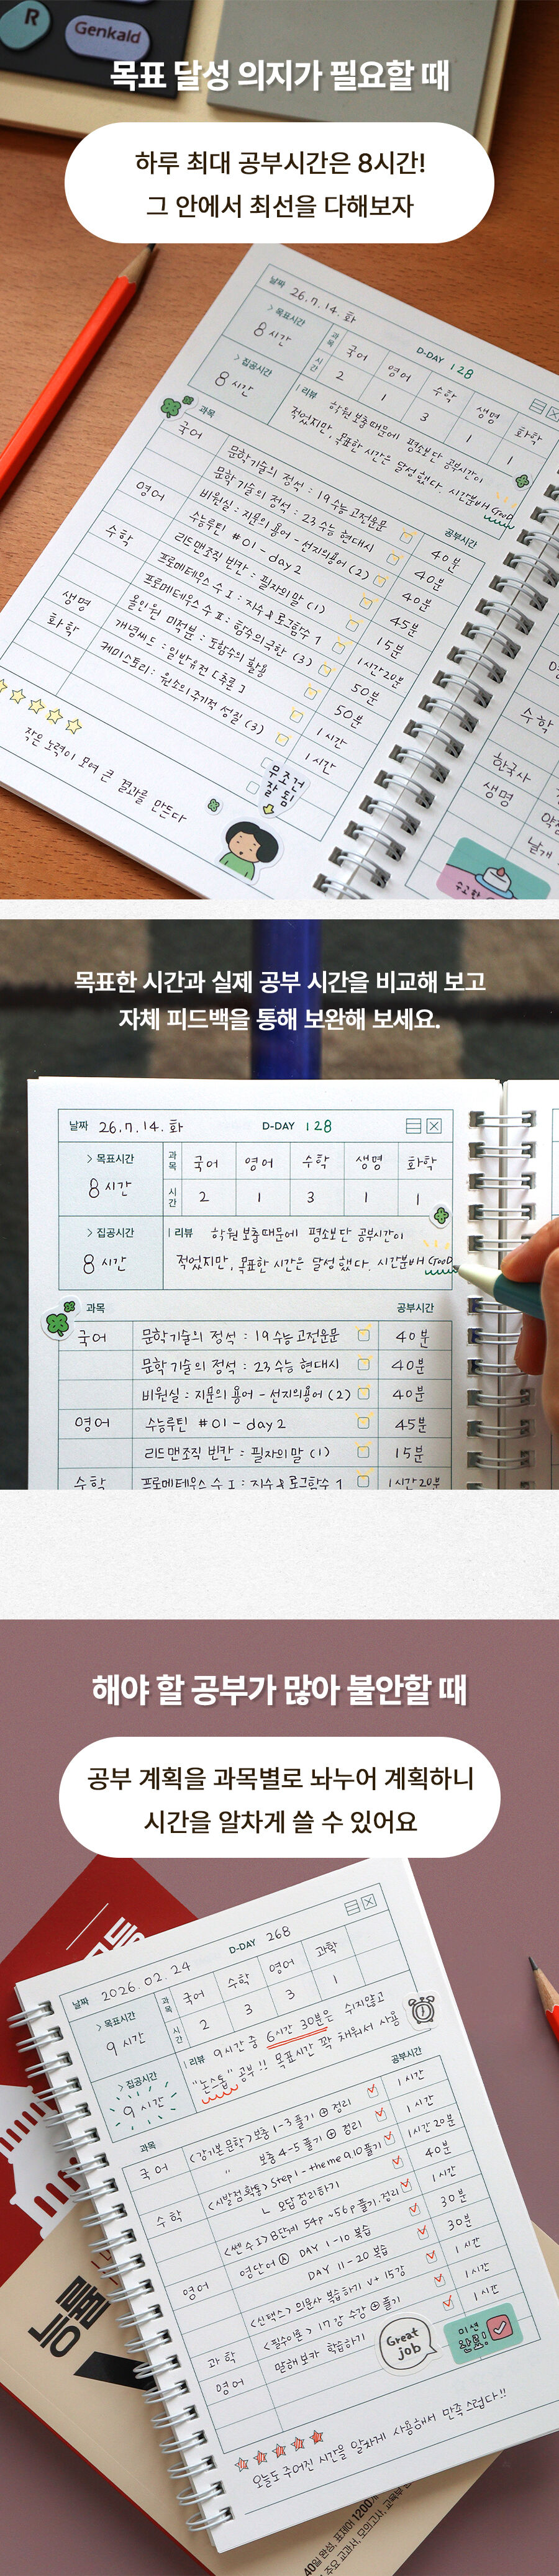 R
Genkald
목표 달성 의지가 필요할 때
하루 최대 공부시간은 8시간!
그 안에서 최선을 다해보자
날짜 26.7.14.화
D-DAY 128
> 목표시간
8시간
과목 국어 영어 수학 생명 화학
시간 2 1 3 1 1
> 집공시간
8시간
| 리뷰 학원 보충때문에 평소보단 공부시간이
적었지만, 목표한 시간은 달성했다. 시간분배 GooD
과목 공부시간
국어 문학기술의 정석 : 19수능 고전운문 40분
문학 기술의 정석 : 23수능 현대시 40분
비원실 : 지문의 용어 - 선지의용어 (2) 40분
영어 수능루틴 #01 - day2 45분
리드맨조직 빈칸 : 필자의말 (1) 15분
수학 프로메테우스 수Ⅰ : 지수&로그함수 1 1시간20분
프로메테우스 수Ⅱ : 함수의극한 (3) 50분
올인원 미적분 : 도함수의 활용 50분
생명 개념씨드 : 일반유전 [추론] 1시간
화학 케미스토리 : 원소의 주기적 성질 (3) 1시간
작은 노력이 모여 큰 결과를 만든다
무조건
잘 됨
수학
한국사
생명
날개
목표한 시간과 실제 공부 시간을 비교해 보고
자체 피드백을 통해 보완해 보세요.
날짜 26.7.14.화 D-DAY 128
> 목표시간
8시간
과목 국어 영어 수학 생명 화학
시간 2 1 3 1 1
> 집공시간
8시간
| 리뷰 학원 보충때문에 평소보단 공부시간이
적었지만, 목표한 시간은 달성했다. 시간분배 GooD
과목 공부시간
국어 문학기술의 정석 : 19수능 고전운문 40분
문학 기술의 정석 : 23수능 현대시 40분
비원실 : 지문의 용어 - 선지의용어 (2) 40분
영어 수능루틴 #01 - day2 45분
리드맨조직 빈칸 : 필자의말 (1) 15분
수학 프로메테우스 수Ⅰ : 지수&로그함수 1 1시간20분
해야 할 공부가 많아 불안할 때
공부 계획을 과목별로 놔누어 계획하니
시간을 알차게 쓸 수 있어요
날짜 2026.02.24
D-DAY 268
> 목표시간
9시간
과목 국어 수학 영어 과학
시간 2 3 3 1
> 집공시간
9시간
| 리뷰 9시간 중 6시간 30분은 쉬지않고
"논스톱" 공부!! 목표시간 꽉 채워서 사용
과목 공부시간
국어 <강기본 문학> 보충 1-3 풀기 ⊕ 정리 1시간
" 보충 4-5 풀기 ⊕ 정리 1시간
수학 <시발점 확통> Step1 - theme 9,10 풀기 1시간 20분
ㄴ 오답정리하기 40분
<쎈 수Ⅰ> B단계 54p ~56p 풀기.정리 1시간
영어 영단어Ⓐ DAY 1-10 복습 30분
DAY 11-20 복습 30분
<신택스> 의문사 복습하기 v+ 15강 1시간
과학 <필수이론> 17강 수강 ⊕ 풀기 1시간
영어 말해보카 학습하기 1시간
Great
job
미션
오늘도 주어진 시간을 알차게 사용해서 만족스럽다!!
능률
40일 완성, 표제어 1200개
주요 교과서, 모의고사, 교육부